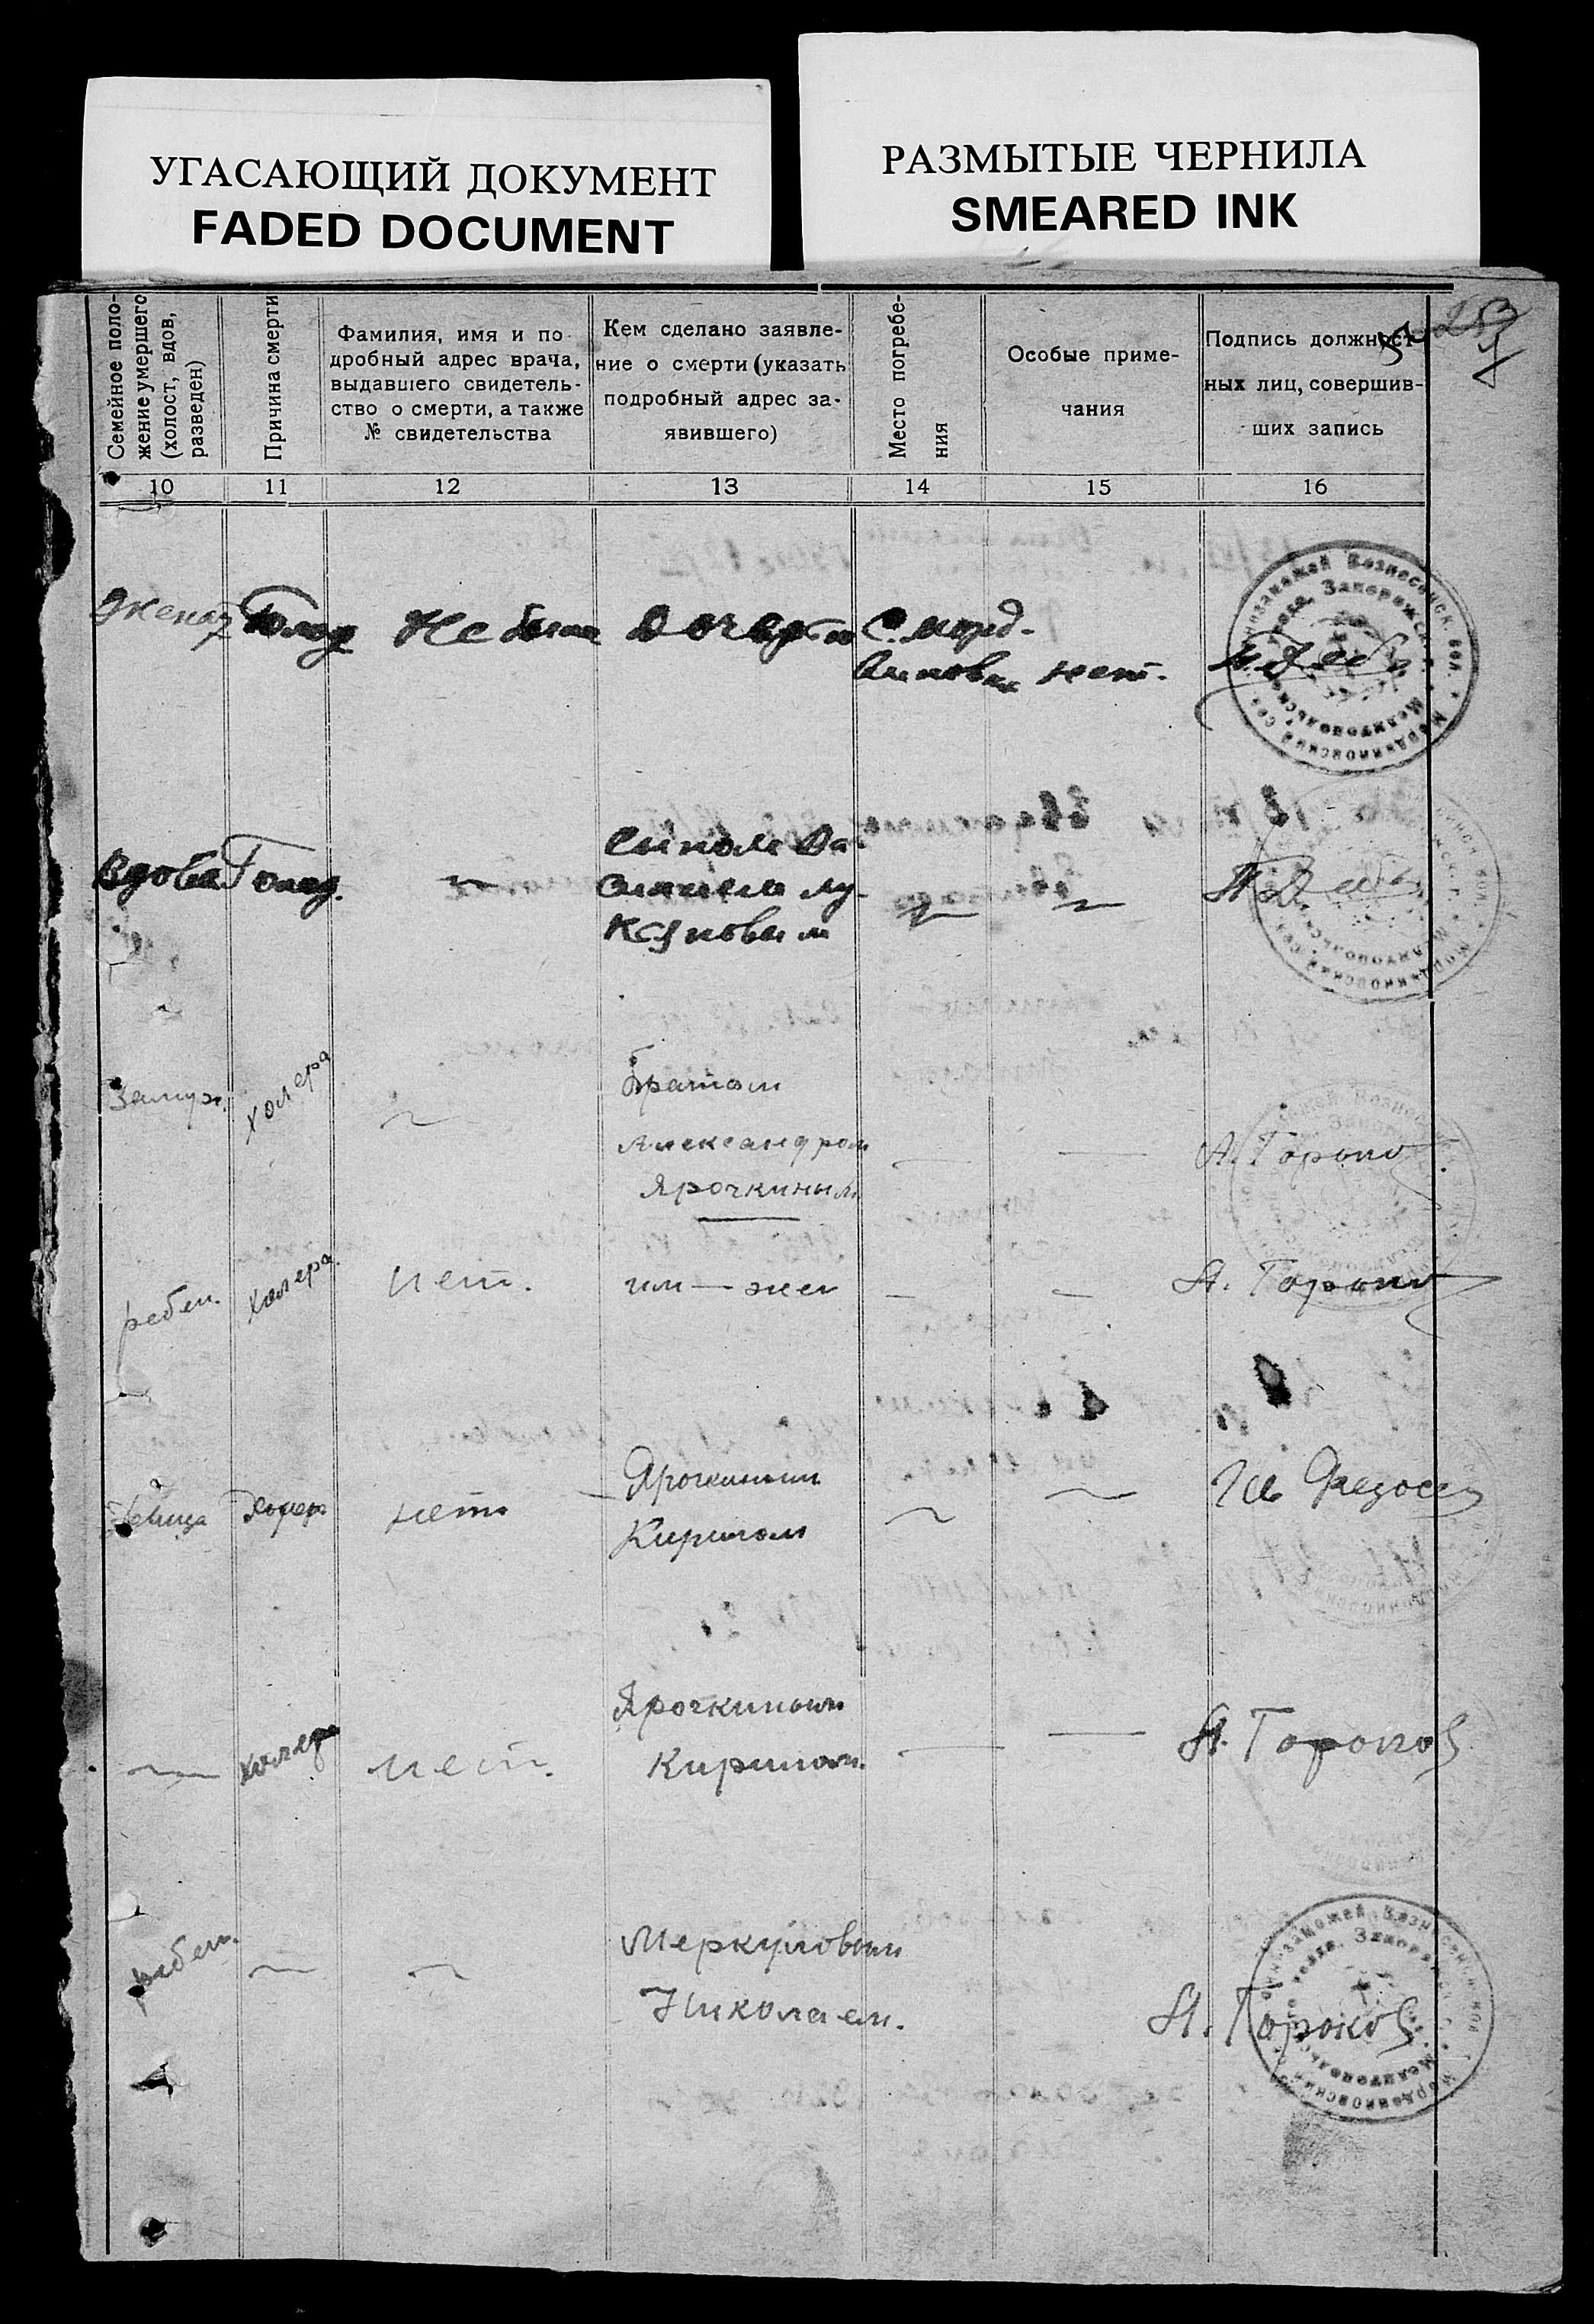 УГАСАЮЩИЙ ДОКУМЕНТ
FADED DOCUMENT
РАЗМЫТЫЕ ЧЕРНИЛА
SMEARED INK
Семейное поло-
жение умершего
(холост, вдов,
разведен)
Причина смерти
Фамилия, имя и по
дробный адрес врача,
выдавшего свидетель-
ство о смерти, а также
№ свидетельства
Кем сделано заявле-
ние о смерти (указать
подробный адрес за-
явившего)
Место погребе-
ния
Особые приме-
чания
Подпись должност-
ных лиц, совершив-
ших запись
10 11 12 13 14 15 16
женат Голод Не было Дочерью С. Морд-
виновка нет.
Вдова Голод.
Сыном Ва
силием Лу-
кяновым
Замуж. холера
Братом
Александром
Ярочкиным
А. Торопов
ребен. холера. нет. им—же А. Торопов
девица нет
Ярочкиным
Кирилом
холера нет.
Ярочкиным
Кирилом.
А. Торопов
ребен.
Меркуловым
Николаем.
А. Торопов